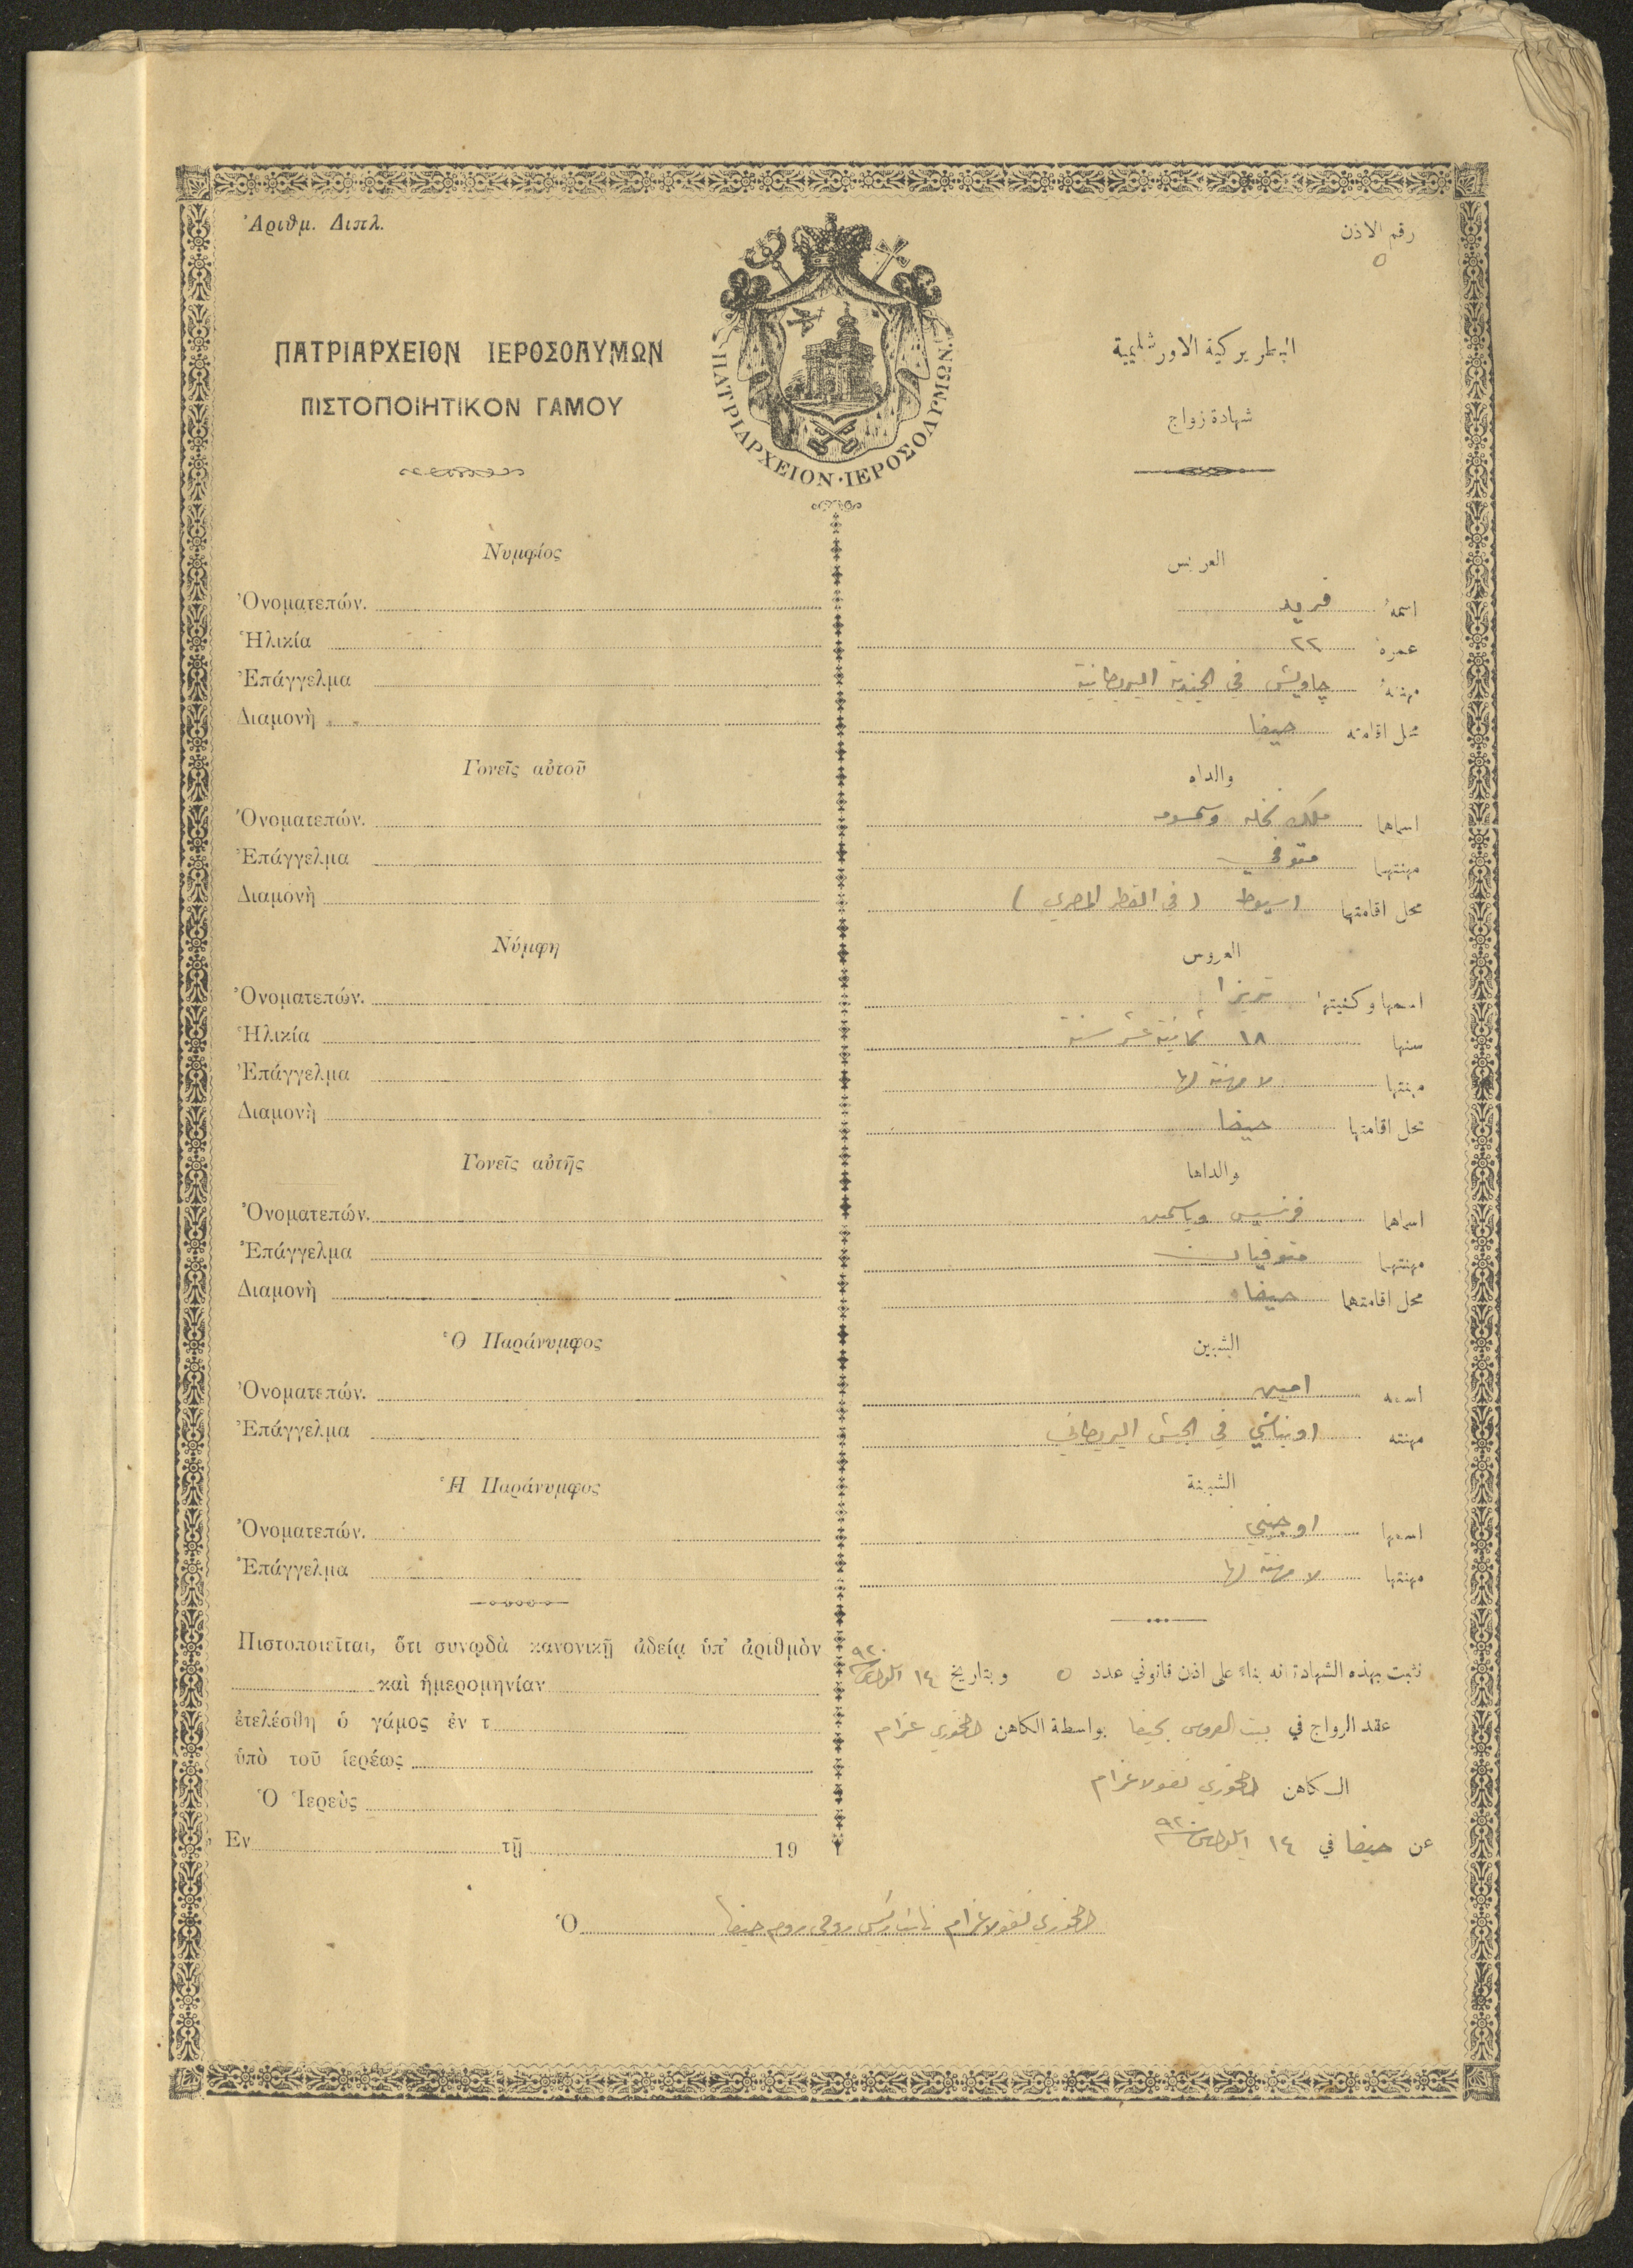 Ἀριθμ. Διπλ.
رقم الاذن
٥
ΠΑΤΡΙΑΡΧΕΙΟΝ ΙΕΡΟΣΟΛΥΜΩΝ
البطريركية الاورشليمية
ΠΙΣΤΟΠΟΙΗΤΙΚΟΝ ΓΑΜΟΥ
شهادة زواج
ΠΑΤΡΙΑΡΧΕΙΟΝ·ΙΕΡΟΣΟΛΥΜΩΝ.
Νυμφίος
Ὀνοματεπών.
Ἡλικία
Ἐπάγγελμα
Διαμονὴ
Γονεῖς αὐτοῦ
Ὀνοματεπών.
Ἐπάγγελμα
Διαμονὴ
Νύμφη
Ὀνοματεπών.
Ἡλικία
Ἐπάγγελμα
Διαμονὴ
Γονεῖς αὐτῆς
Ὀνοματεπών.
Ἐπάγγελμα
Διαμονὴ
Ὁ Παράνυμφος
Ὀνοματεπών.
Ἐπάγγελμα
Ἡ Παράνυμφος
Ὀνοματεπών.
Ἐπάγγελμα
Πιστοποιεῖται, ὅτι συνῳδὰ κανονικῇ ἀδείᾳ ὑπ' ἀριθμὸν
καὶ ἡμερομηνίαν
ἐτελέσθη ὁ γάμος ἐν τ
ὑπὸ τοῦ ἱερέως
Ὁ Ἱερεὺς
Ἐν τῇ 19
العريس
اسمهُ فريد
عمرهُ ٢٢
مهنتهُ چاويش في الجندية البريطانية
محل اقامته حيفا
والداه
اسماهما ملك نخله
مهنتهما متوفي
محل اقامتهما اسيوط (في القطر المصري)
العروس
اسمها وكنيتها تريزا
سنها ١٨ ثمانية عشر سنة
مهنتها لا مهنة لها
محل اقامتها حيفا
والداها
اسماهما فرنسيس وياسمين
مهنتهما متوفيان
محل اقامتهما حيفا
الشبين
اسمه امين
مهنته اونباشي في الجيش البريطاني
الشبينة
اسمها اوجيني
مهنتها لا مهنة لها
نثبت بهذه الشهادة انه بناء على اذن قانوني عدد ٥ وبتاريخ ١٤ ايلول ٩٢٠
عقد الزواج في بيت العروس بحيفا بواسطة الكاهن الخوري عزام
الكاهن الخوري نقولا عزام
عن حيفا في ١٤ ايلول ٩٢٠
Ὁ الخوري نقولا عزام نائب رئيس روحي روم حيفا